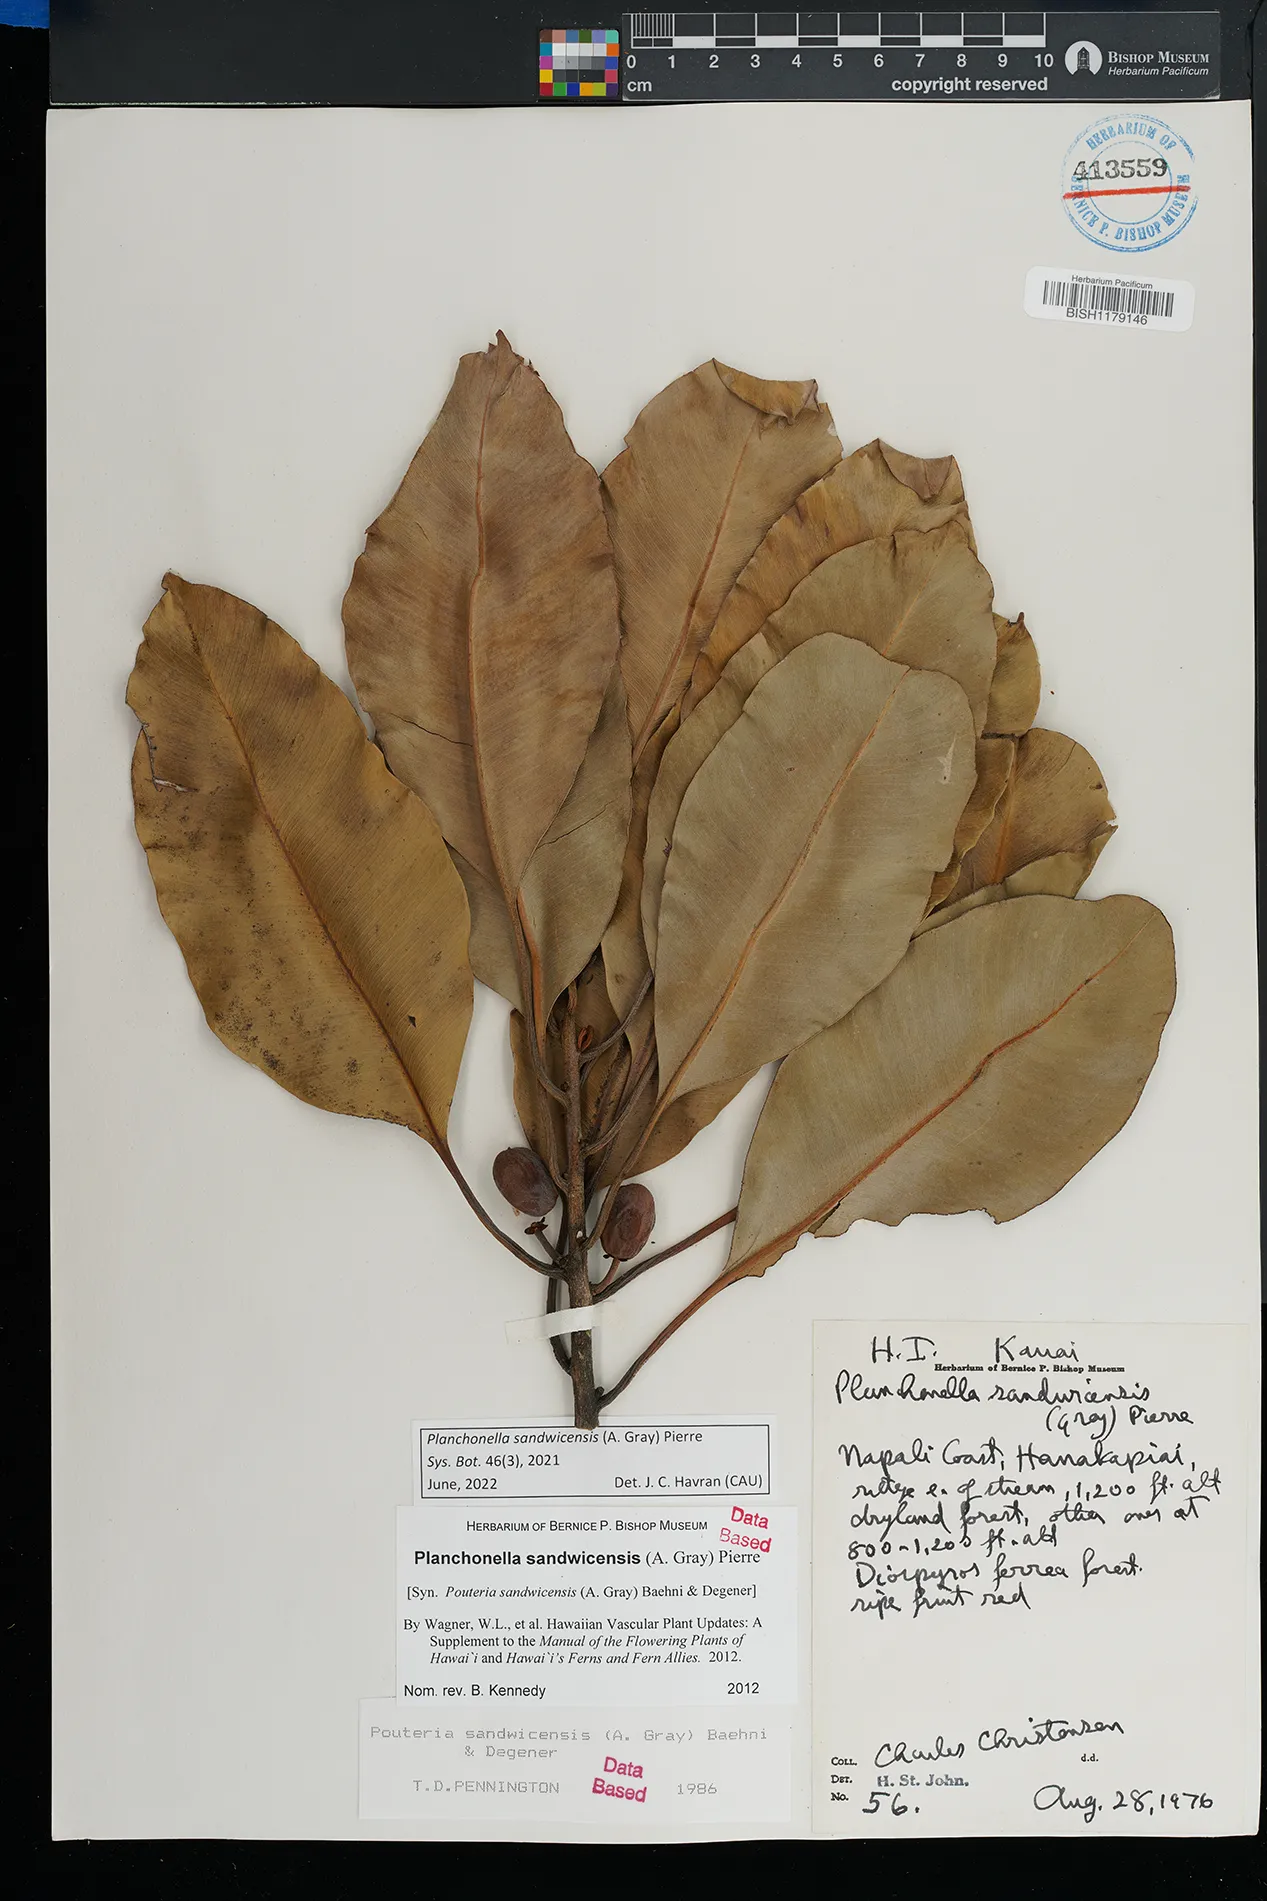 0 1 2 3 4 5 6 7 8 9 10
cm
copyright reserved
BISHOP MUSEUM
Herbarium Pacificum
HERBARIUM OF
413559
BERNICE P. BISHOP MUSEUM
Herbarium Pacificum
BISH1179146
H.I. Kauai
Herbarium of Bernice P. Bishop Museum
Planchonella sandwicensis
(Gray) Pierre
Napali Coast, Hanakapiai,
ridge e. of stream, 1,200 ft. alt
dryland forest, other ones at
800-1,200 ft. alt
Diospyros ferrea forest.
ripe fruit red
COLL. Charles Christensen
d.d.
DET. H. St. John.
No. 56.
Aug. 28, 1976
Planchonella sandwicensis (A. Gray) Pierre
Sys. Bot. 46(3), 2021
June, 2022 Det. J. C. Havran (CAU)
HERBARIUM OF BERNICE P. BISHOP MUSEUM
Data
Based
Planchonella sandwicensis (A. Gray) Pierre
[Syn. Pouteria sandwicensis (A. Gray) Baehni & Degener]
By Wagner, W.L., et al. Hawaiian Vascular Plant Updates: A
Supplement to the Manual of the Flowering Plants of
Hawai`i and Hawai`i's Ferns and Fern Allies. 2012.
Nom. rev. B. Kennedy 2012
Pouteria sandwicensis (A. Gray) Baehni
& Degener
Data
Based
T.D.PENNINGTON 1986